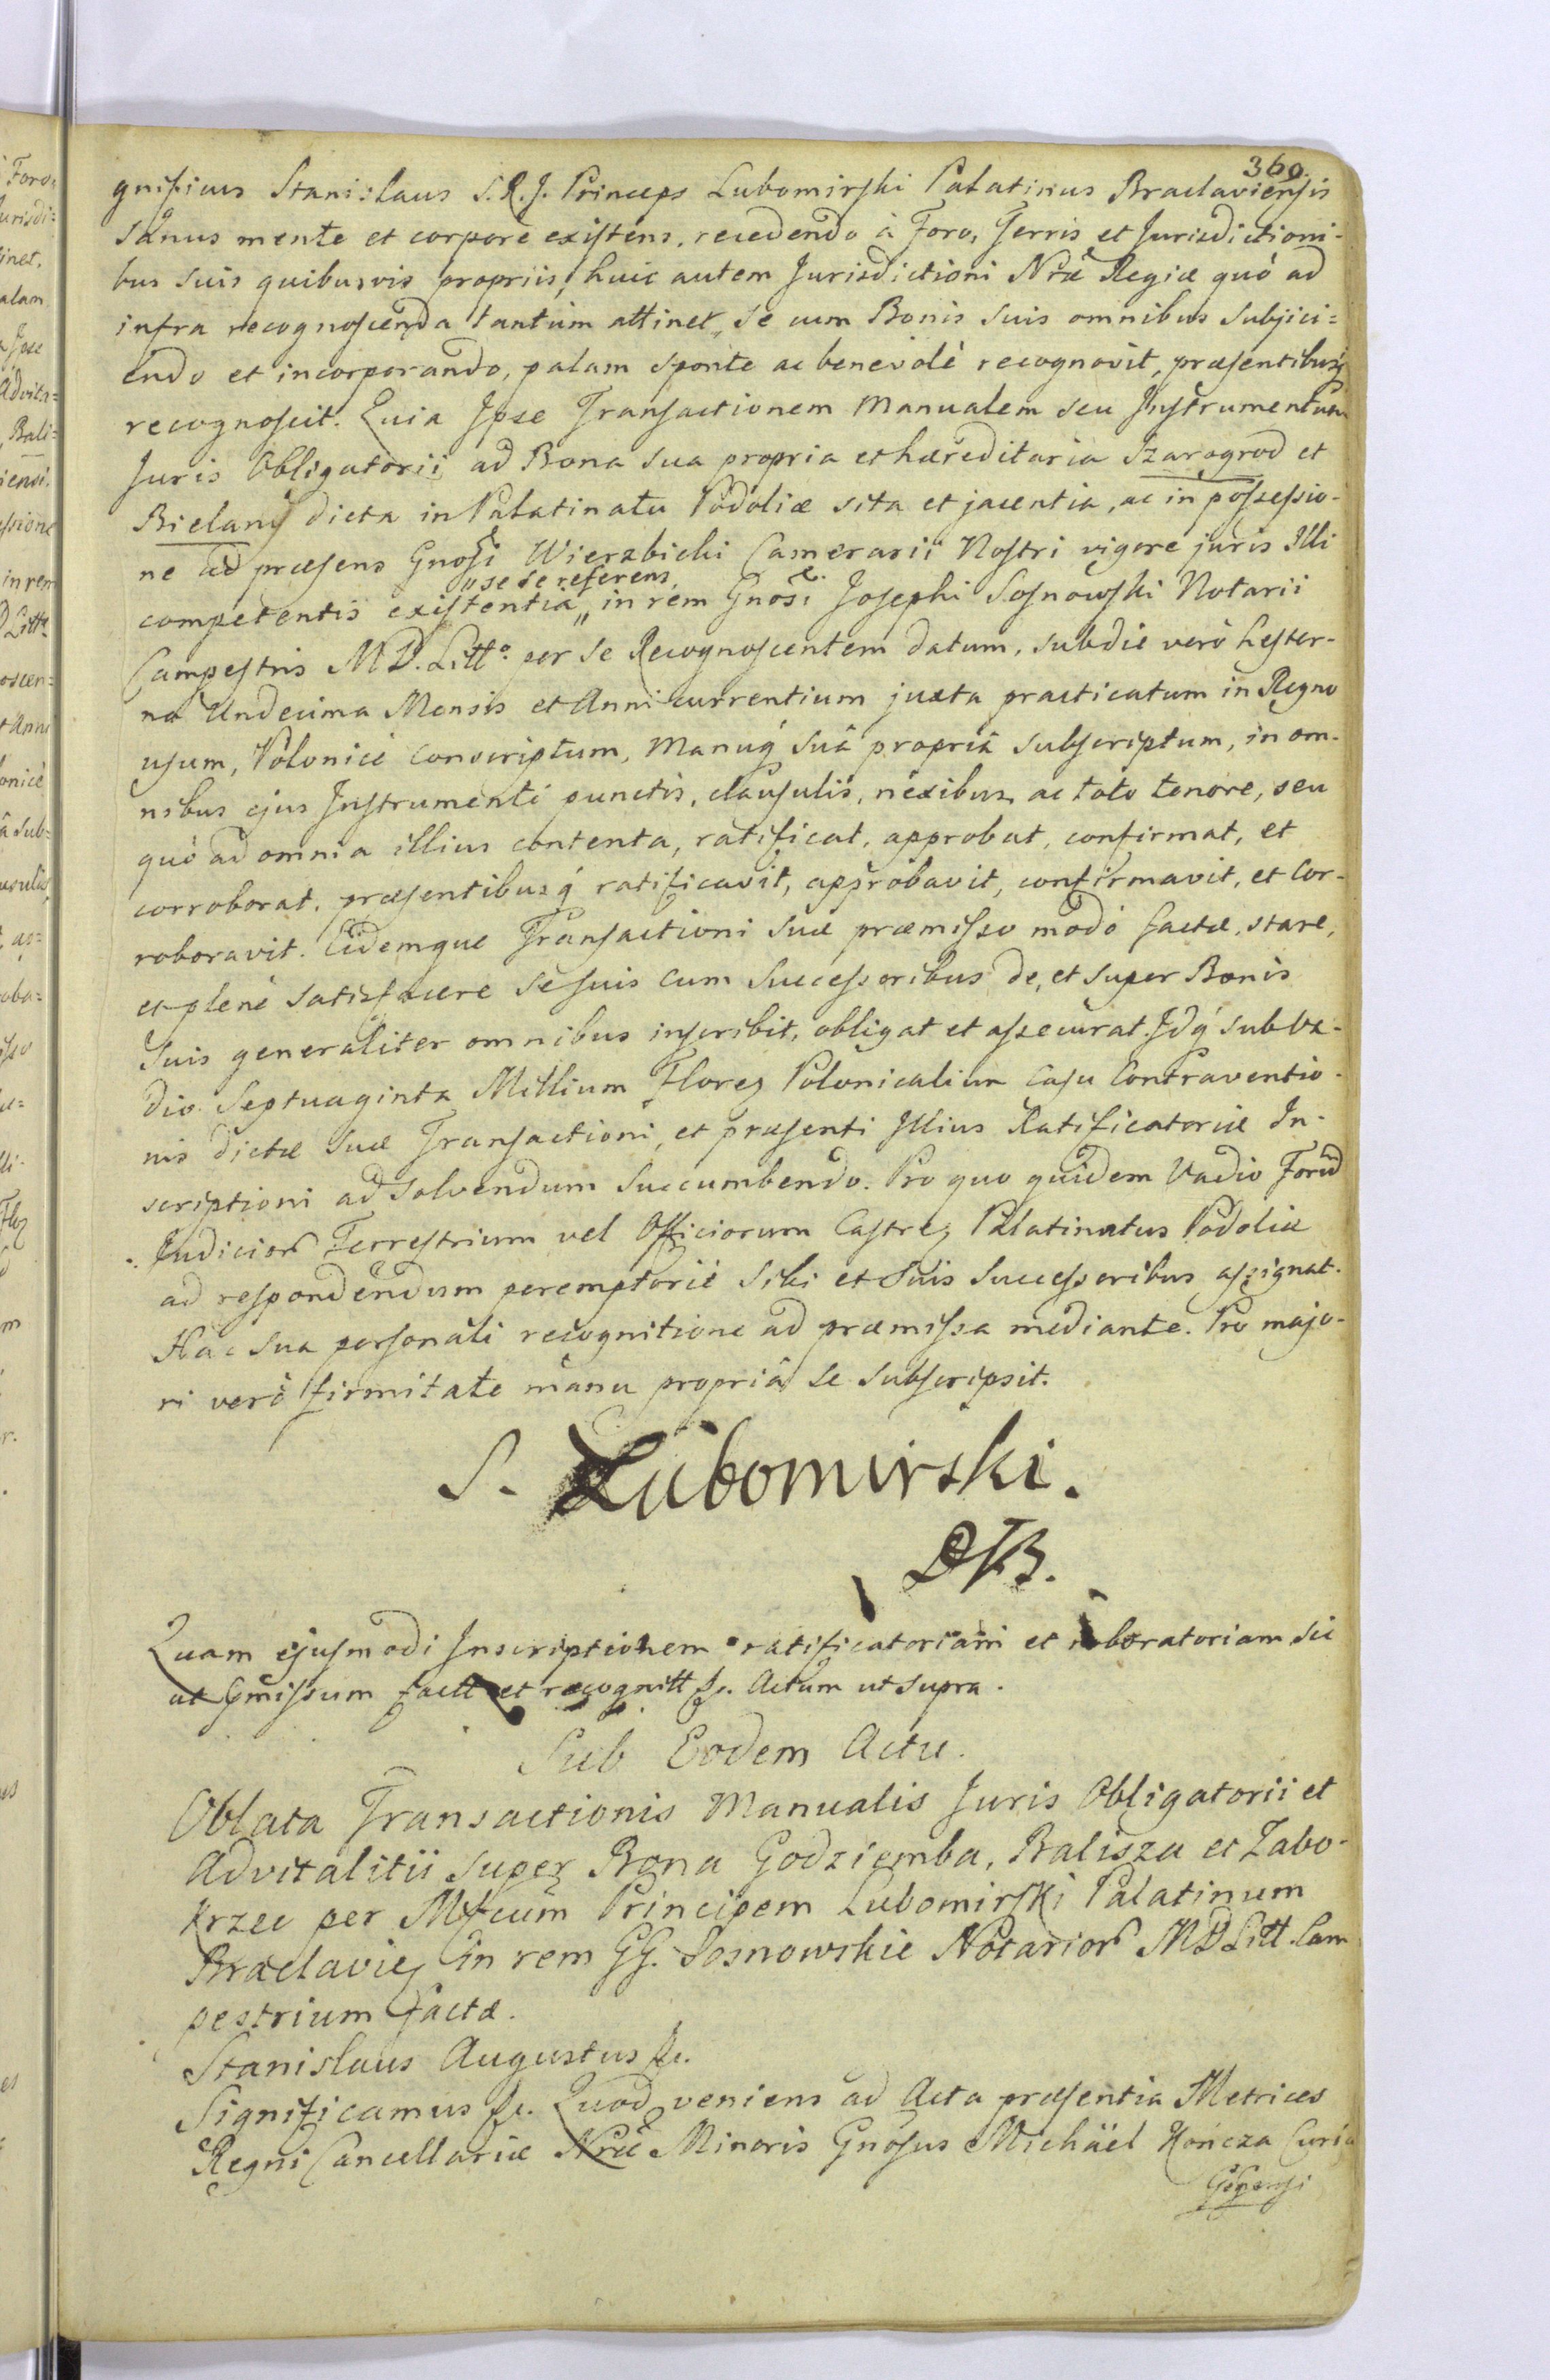 360.
gnificus Stanislaus S.R.J. Princeps Lubomirski Palatinus Braclaviensis
sanus mente et corpore existens, recedendo à Foro, Terris et Jurisdictioni-
bus suis quibusvis propriis, huic autem Jurisdictioni Nrae Regiae quò ad
infra recognoscenda tantùm attinet, se cum Bonis suis omnibus subjici=
endo et incorporando, palam sponte ac benevolè recognovit, praesentibusq́
recognoscit. Quia Ipse Transactionem Manualem seu Instrumentum
Juris Obligatorii ad Bona sua propria et haereditaria Szarogrod et
Bielany dicta in Palatinatu Podoliae sita et jacentia, ac in possessio-
ne ad praesens Gnosi Wierzbicki Camerarii Nostri vigore juris Illi
„ se se referens
competentis existentia „ in rem Gnosi Josephi Sosnowski Notarii
Campestris M.D. Litto. per se Recognoscentem datum, sub die verò hester-
na Undecima Mensis et Anni currentium juxta practicatum in Regno
usum, Polonicè conscriptum, Manuq́ suâ propriâ subscriptum, in om-
nibus ejus Instrumenti punctis, clausulis, nexibus, ac toto tenore, seu
quò ad omnia illius contenta, ratificat, approbat, confirmat, et
corroborat, praesentibusq́ ratificavit, approbavit, confirmavit, et Cor-
roboravit. Eidemque Transactioni suae praemisso modô factae, stare,
et plenè satisfacere se suis cum Successoribus de, et super Bonis
Suis generaliter omnibus inscribit, obligat et assecurat. Idq́ sub Va-
dio Septuaginta Millium Florez Polonicalium Casu Contraventio-
nis dictae suae Transactioni, et praesenti Illius Ratificatoriae In-
scriptioni ad solvendum Succumbendo. Pro quo quidem Vadio Forum
Judicior Terrestrium vel Officiorum Castrez Palatinatus Podoliae
ad respondendum peremptoriè Sibi et Suis Successoribus assignat.
Hac sua personali recognitione ad praemissa mediante. Pro majo-
ri verò firmitate manu propriâ se subscripsit.
S. Lubomirski.
Quam ejusmodi Inscriptionem ratificatoriam et roboratoriam sic
ut pmissum factt et recognitt &c. Actum ut supra.
Sub Eodem Actu.
Oblata Transactionis Manualis Juris Obligatorii et
Advitalitii super Bona Godziemba, Balisza et Zabo-
krzec per Mfcum Principem Lubomirski Palatinum
Braclaviez in rem GG. Sosnowskie Notarior M.D. Litt. Cam
pestrium factae.
Stanislaus Augustus &c.
Significamus &c. Quod veniens ad Acta praesentia Metrices
Regni Cancellariae Nrae Minoris Gnosus Michäel Hończa Curia